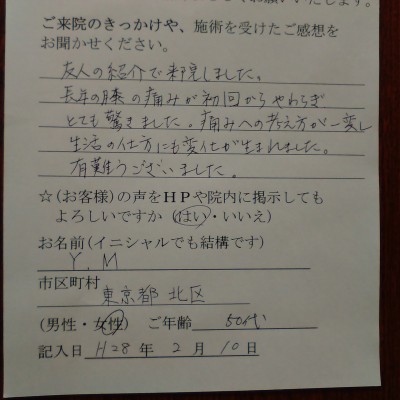 お願いいたします。
ご来院のきっかけや、施術を受けたご感想を
お聞かせください。
友人の紹介で来院しました。
長年の膝の痛みが初回からやわらぎ
とても驚きました。痛みへの考え方が一変し
生活の仕方にも変化が生まれました。
有難うございました。
☆(お客様)の声をHPや院内に掲示しても
よろしいですか (はい・いいえ)
お名前(イニシャルでも結構です)
Y. M
市区町村
東京都 北区
(男性・女性) ご年齢 50代
記入日 H28 年 2 月 10 日